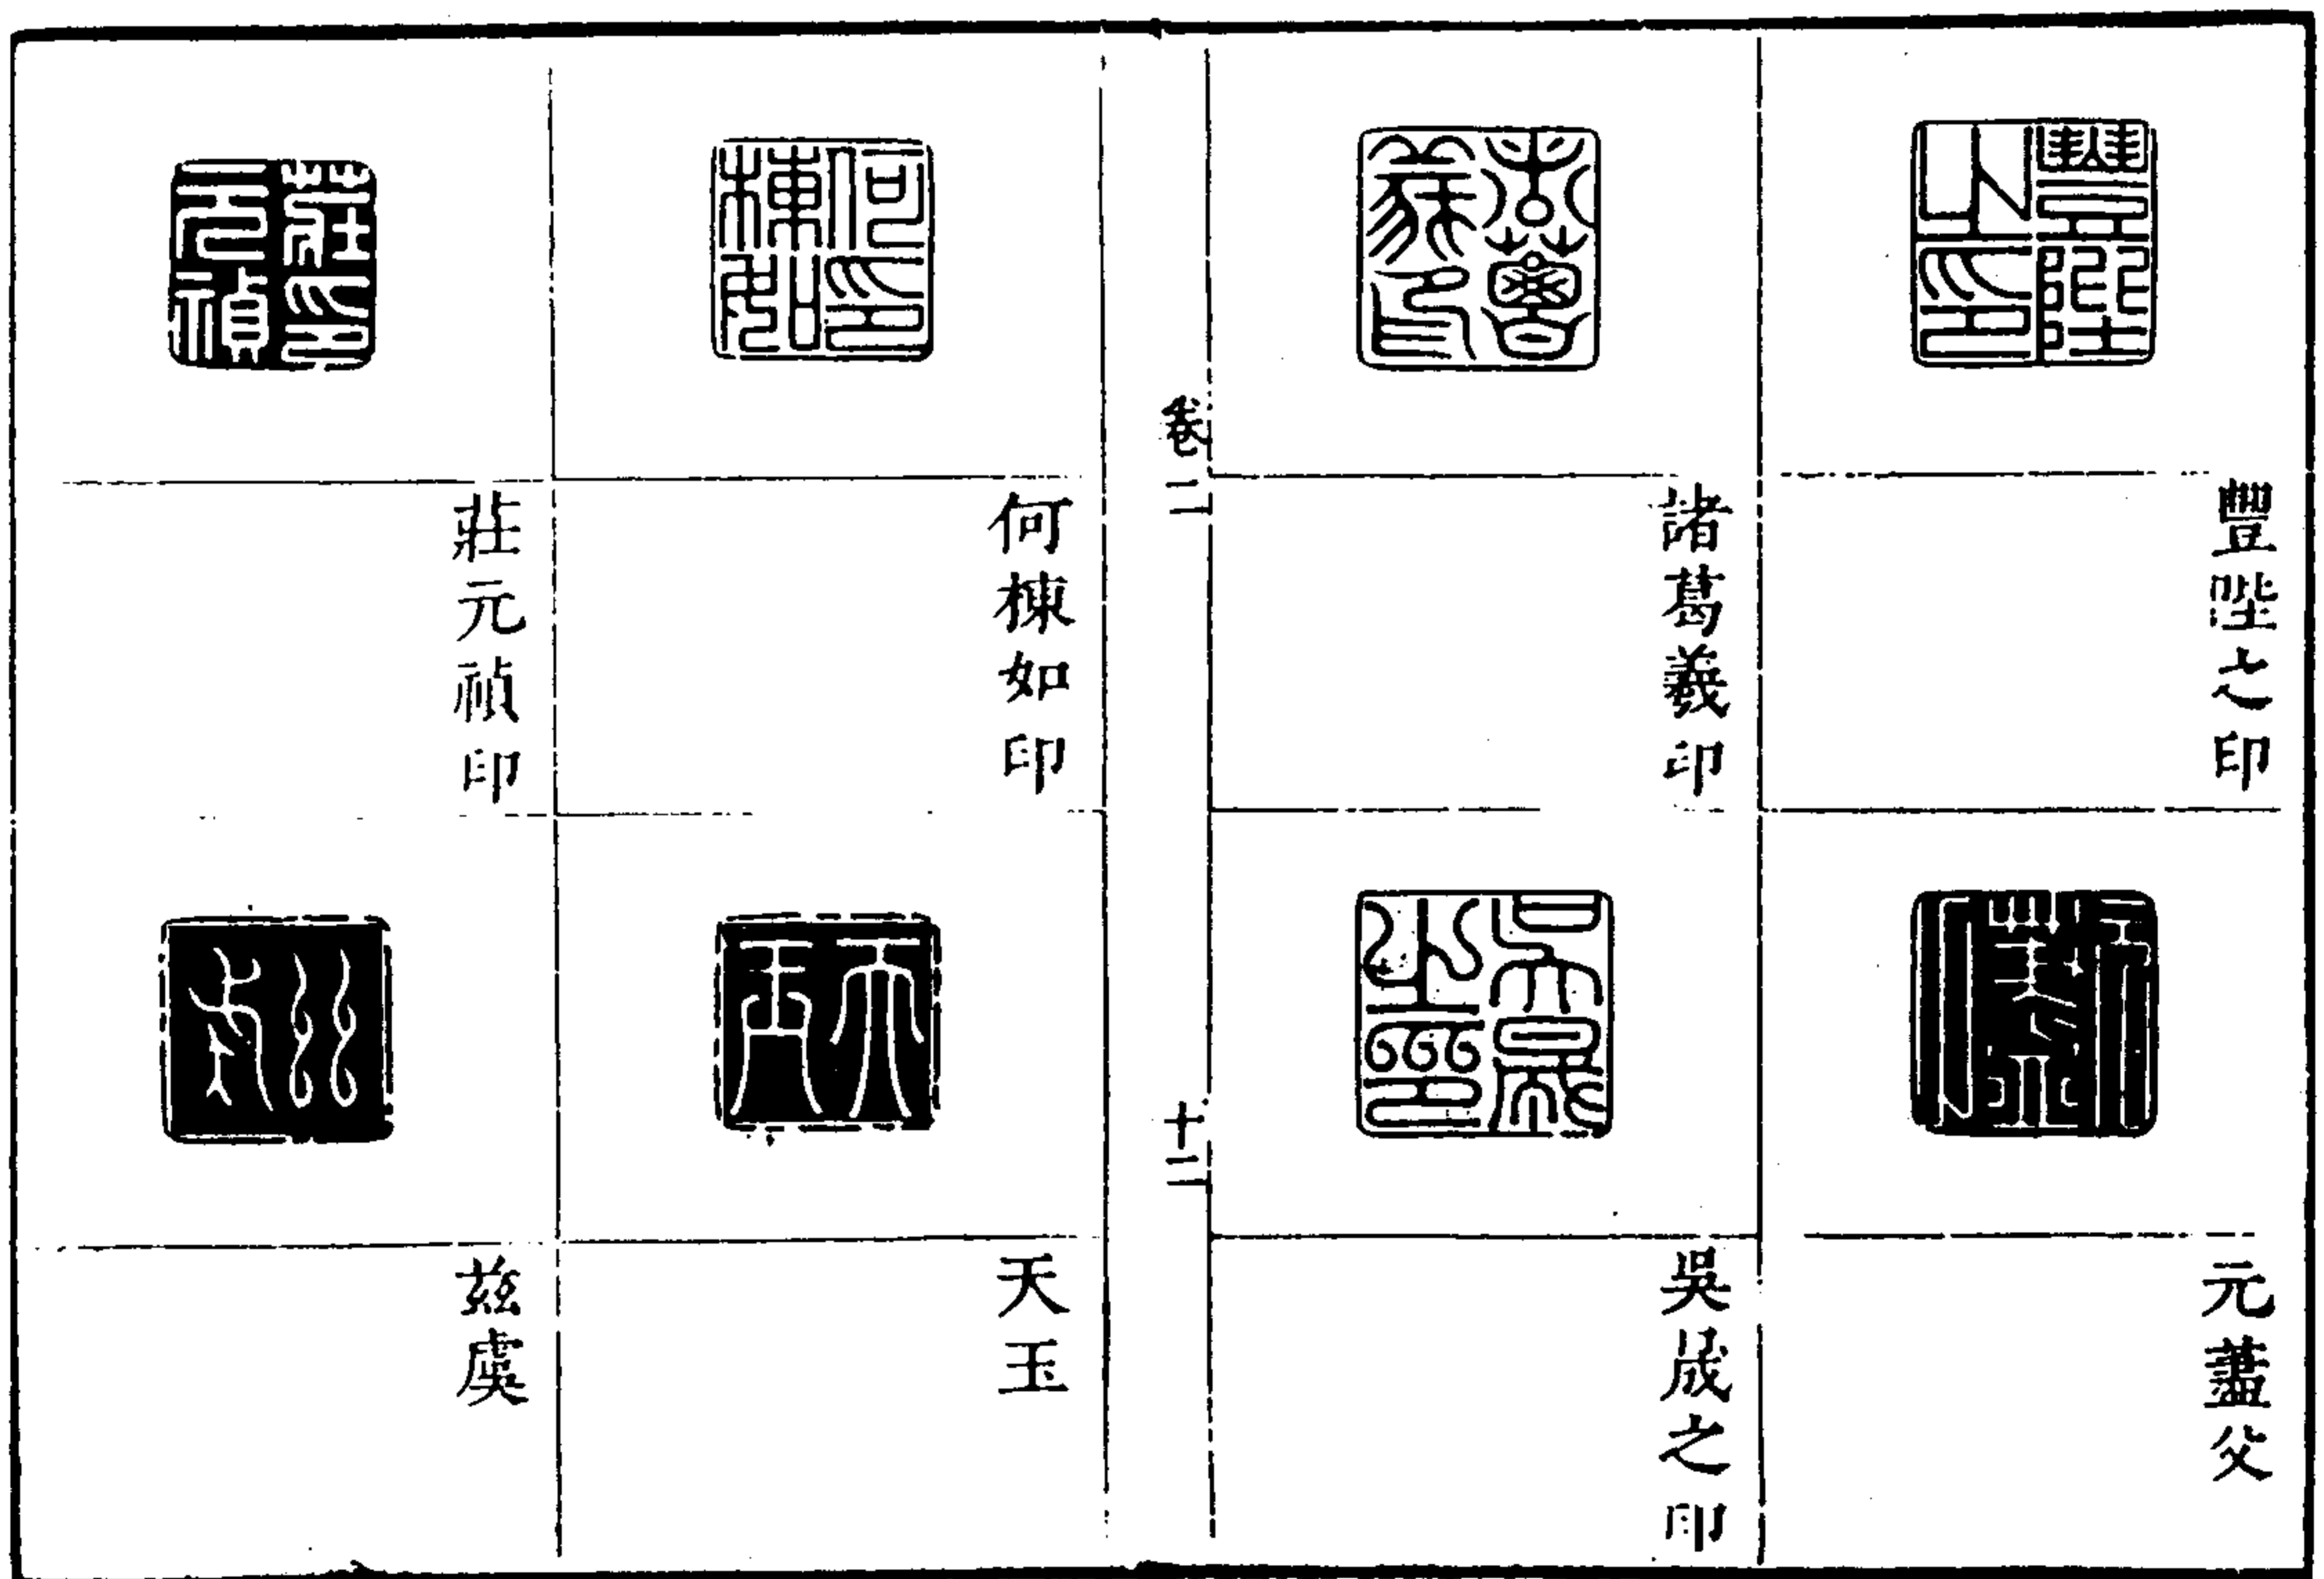 豐陛之印
元藎父
諸葛羲印
吳晟之印
卷二
十二
何棟如印
天玉
莊元禎印
茲虞